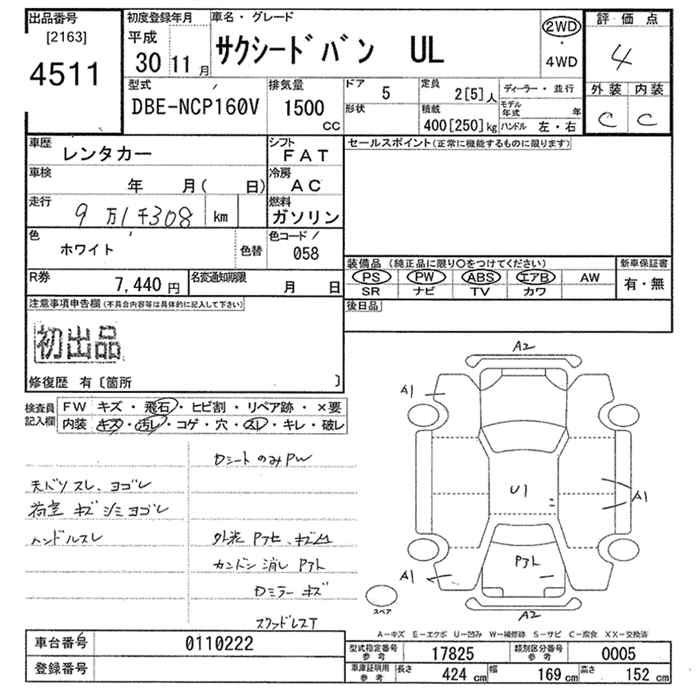 出品番号 初度登録年月 車名・グレード 評価点
[2163] 平成 2WD
4511 30 11月 サクシードバン UL ・ 4
4WD
型式 排気量 ドア 5 定員 2[5]人 ディーラー・並行 外装 内装
DBE-NCP160V 1500 cc 形状 積載 400[250]kg モデル年式 年 C C
ハンドル 左・右
車歴 レンタカー シフト FAT セールスポイント(正常に機能するものに限ります)
車検 年 月( 日) 冷房 AC
走行 9万1千308 km 燃料 ガソリン
色 ホワイト 色替 色コード/ 058
装備品(純正品に限り○をつけてください) 新車保証書
R券 7,440円 名変通知期限 月 日 PS PW ABS エアB AW 有・無
SR ナビ TV カワ
注意事項申告欄(不具合内容等は具体的に記入して下さい) 後日品
初出品
修復歴 有〔箇所 〕
検査員記入欄 FW キズ・飛石・ヒビ割・リペア跡・×要
内装・キズ・汚レ・コゲ・穴・スレ・キレ・破レ
DシートのみPW
天バリスレ、ヨゴレ
荷室 キズシミヨゴレ
ハンドルスレ
カンバン消し Pアト
Dミラーキズ
A2
A1
U1
A1
Pアト
A1
A2
スペア
A-キズ E-エクボ U-凹み W-補修跡 S-サビ C-腐食 XX-交換済
車台番号 0110222 型式指定番号 参考 17825 類別区分番号 参考 0005
登録番号 車庫証明用 参考 長さ 424cm 幅 169cm 高さ 152cm